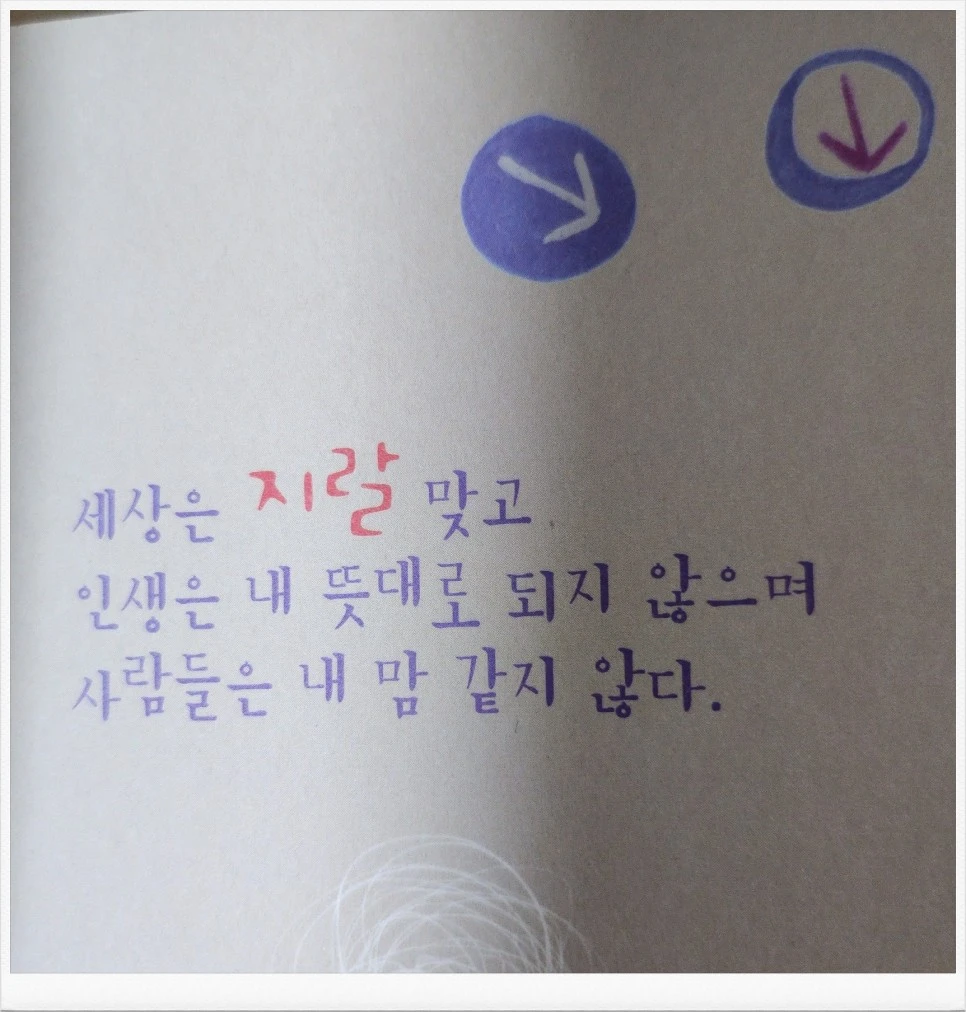 세상은 지랄 맞고
인생은 내 뜻대로 되지 않으며
사람들은 내 맘 같지 않다.